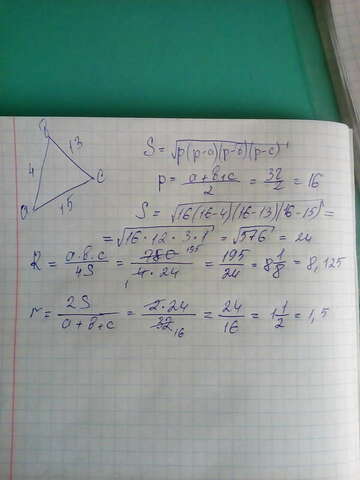 B
4
13
C
a
15
S = √p(p-a)(p-b)(p-c)
p = a+b+c/2 = 32/2 = 16
S = √16(16-4)(16-13)(16-15) =
= √16·12·3·1 = √576 = 24
R = a·b·c/4S = 780 195/1 4·24 = 195/24 = 8 1/8 = 8,125
r = 2S/a+b+c = 2·24/32 16 = 24/16 = 1 1/2 = 1,5